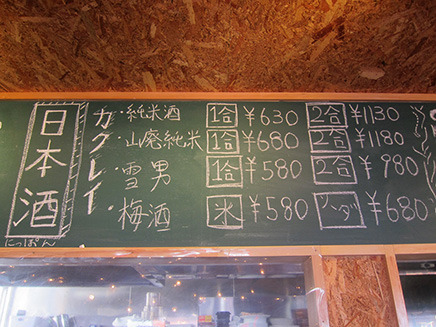 日本酒
にっぽん
カグレイ
・純米酒 1合 ¥630 2合 ¥1130
・山廃純米 1合 ¥680 2合 ¥1180
・雪男 1合 ¥580 2合 ¥980
・梅酒 米 ¥580 ソーダ ¥680